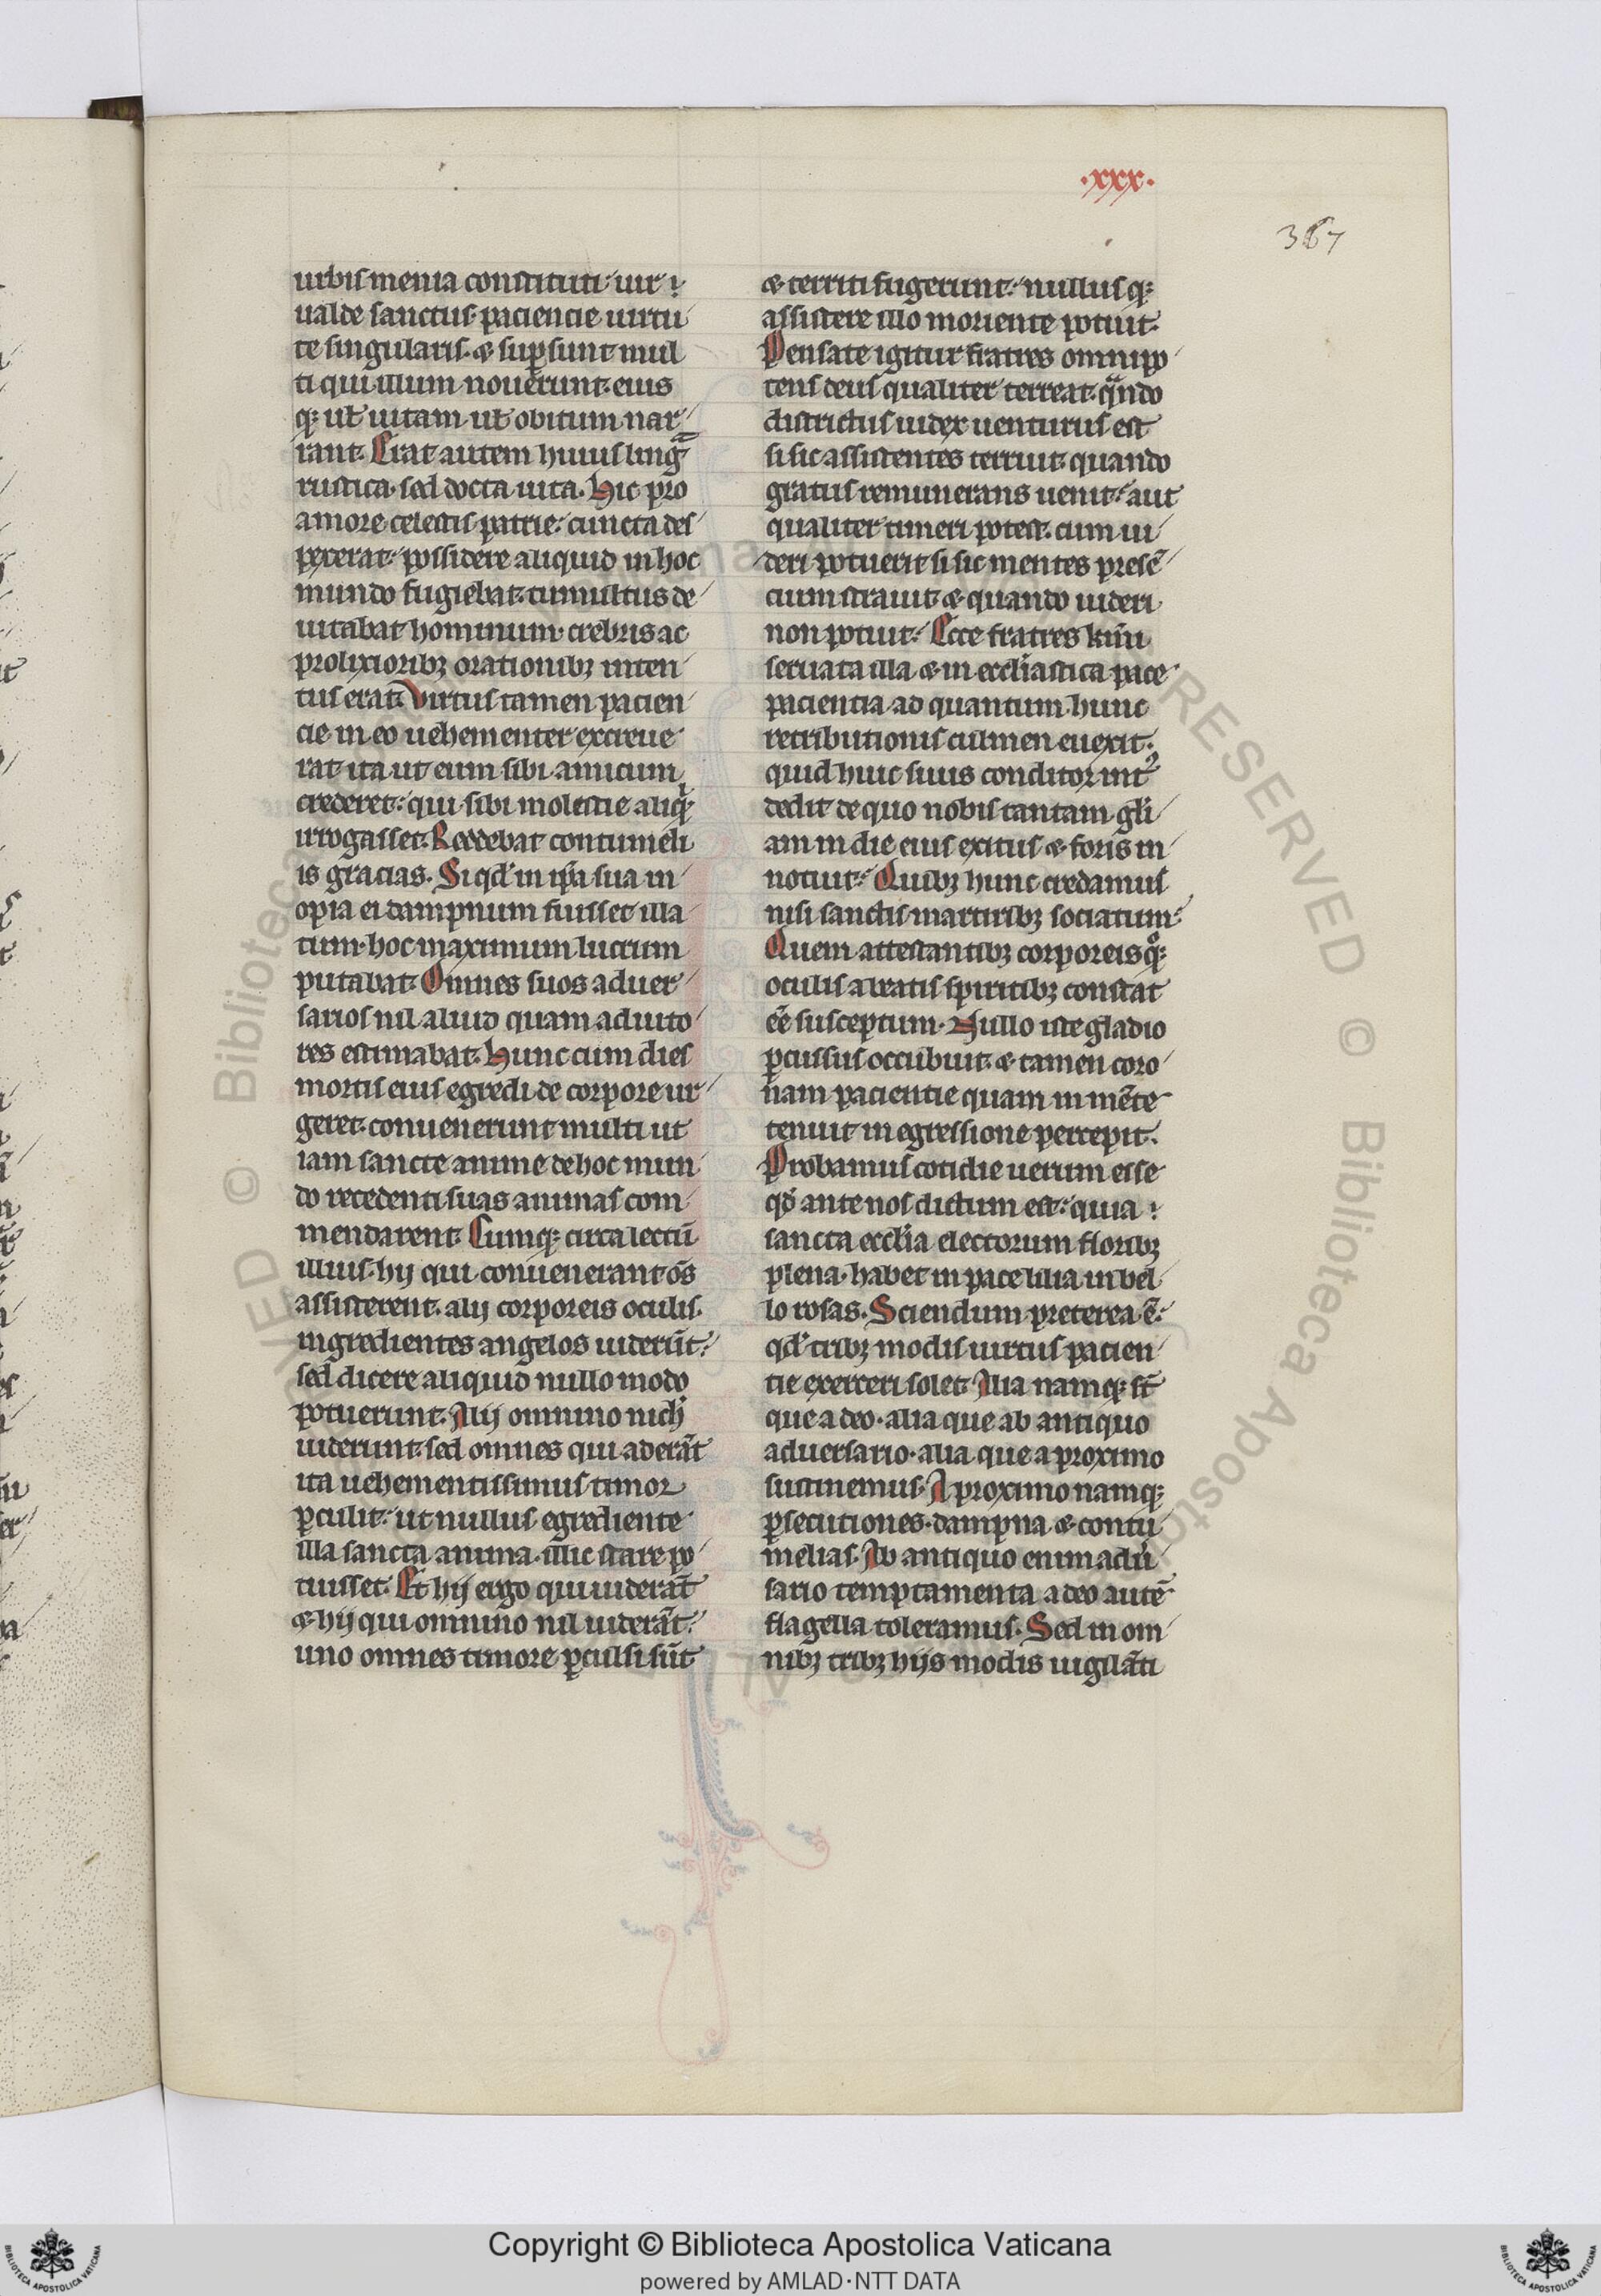 .xxx.
367
urbis menia constituti uir
ualde sanctus paciencie uirtu
te singularis. & sup̱sunt mul
ti qui illum nouerunt. eius
q; ul̵ uitam ul̵ obitum nar
rant. Erat autem huius ling̃
rustica. sed docta uita. Hic pro
amore celestis patrie: cuncta des
pexerat. possidere aliquid in hoc
mundo fugiebat. tumultus de
uitabat hominum. crebris ac
prolixioribꝫ orationibꝫ inten
tus erat. Virtus tamen pacien
cie in eo uehementer excreue
rat ita ut eum sibi amicum
crederet: qui sibi molestie aliqͥ
irrogasset. Reddebat contumeli
is gracias. Si qd' in ip̃a sua in
opia ei dampnum fuisset illa
tum. hoc maximum lucrum
putabat. Omnes suos aduer
sarios nil aliud quam adiuto
res estimabat. Hunc cum dies
mortis eius egredi de corpore ur
geret. conuenerunt multi ut
iam sancte anime de hoc mun
do recedenti suas animas com
mendarent. Cumq; circa lectū
illius. hij qui conuenerant om̃s
assisterent. alij corporeis oculis
ingredientes angelos uiderūt.
sed dicere aliquid nullo modo
potuerunt. Alij omnino nich'
uiderunt. sed omnes qui aderāt
ita uehementissimus timor
ꝑculit: ut nullus egrediente
illa sancta anima. illic stare po
tuisset. Et hij ergo qui uiderāt
& hij qui omnino nil uiderāt.
uno omnes timore ꝑculsi sūt
& territi fugerunt. nullusq;
assistere illo moriente potuit.
Pensate igitur fratres omnipo
tens deus qualiter terreat. qᵃndo
districtus iudex uenturus est
si sic assistentes terruit. quando
gratus remunerans uenit. aut
qualiter timeri potest. cum ui
deri potuerit si sic mentes presē
cium strauit. & quando uideri
non potuit. Ecce fratres kīmi
seruata illa & in eccl'iastica pace
paciencia ad quantum hunc
retributionis culmen euexit.
quid huic suus conditor intᵒ
dedit de quo nobis tantam gl'i
am in die eius exitus & foris in
notuit. Quibꝫ hunc credamus
nisi sanctis martiribꝫ sociatum.
Quem attestantibꝫ corporeis qͦq;
oculis a beatis spiritibꝫ constat
eē susceptum. Nullo iste gladio
ꝑcussus occubuit. & tamen coro
nam pacientie quam in mēte
tenuit in egressione percepit.
Probamus cotidie uerum esse
qd̉ ante nos dictum est. quia
sancta eccl'ia electorum floribꝫ
plena. habet in pace lilia in bel
lo rosas. Sciendum preterea ē.
qd' tribꝫ modis uirtus pacien
tie exerceri solet. Alia namq; st̄
que a deo. alia que ab antiquo
aduersario. alia que a proximo
sustinemus. A proximo namq;
ꝑsecutiones. dampna & contu
melias. Ab antiquo enim adu'
sario temptamenta. a deo autē
flagella toleramus. Sed in om
nibꝫ tribꝫ hijs modis uigilāti
Copyright © Biblioteca Apostolica Vaticana
powered by AMLAD·NTT DATA